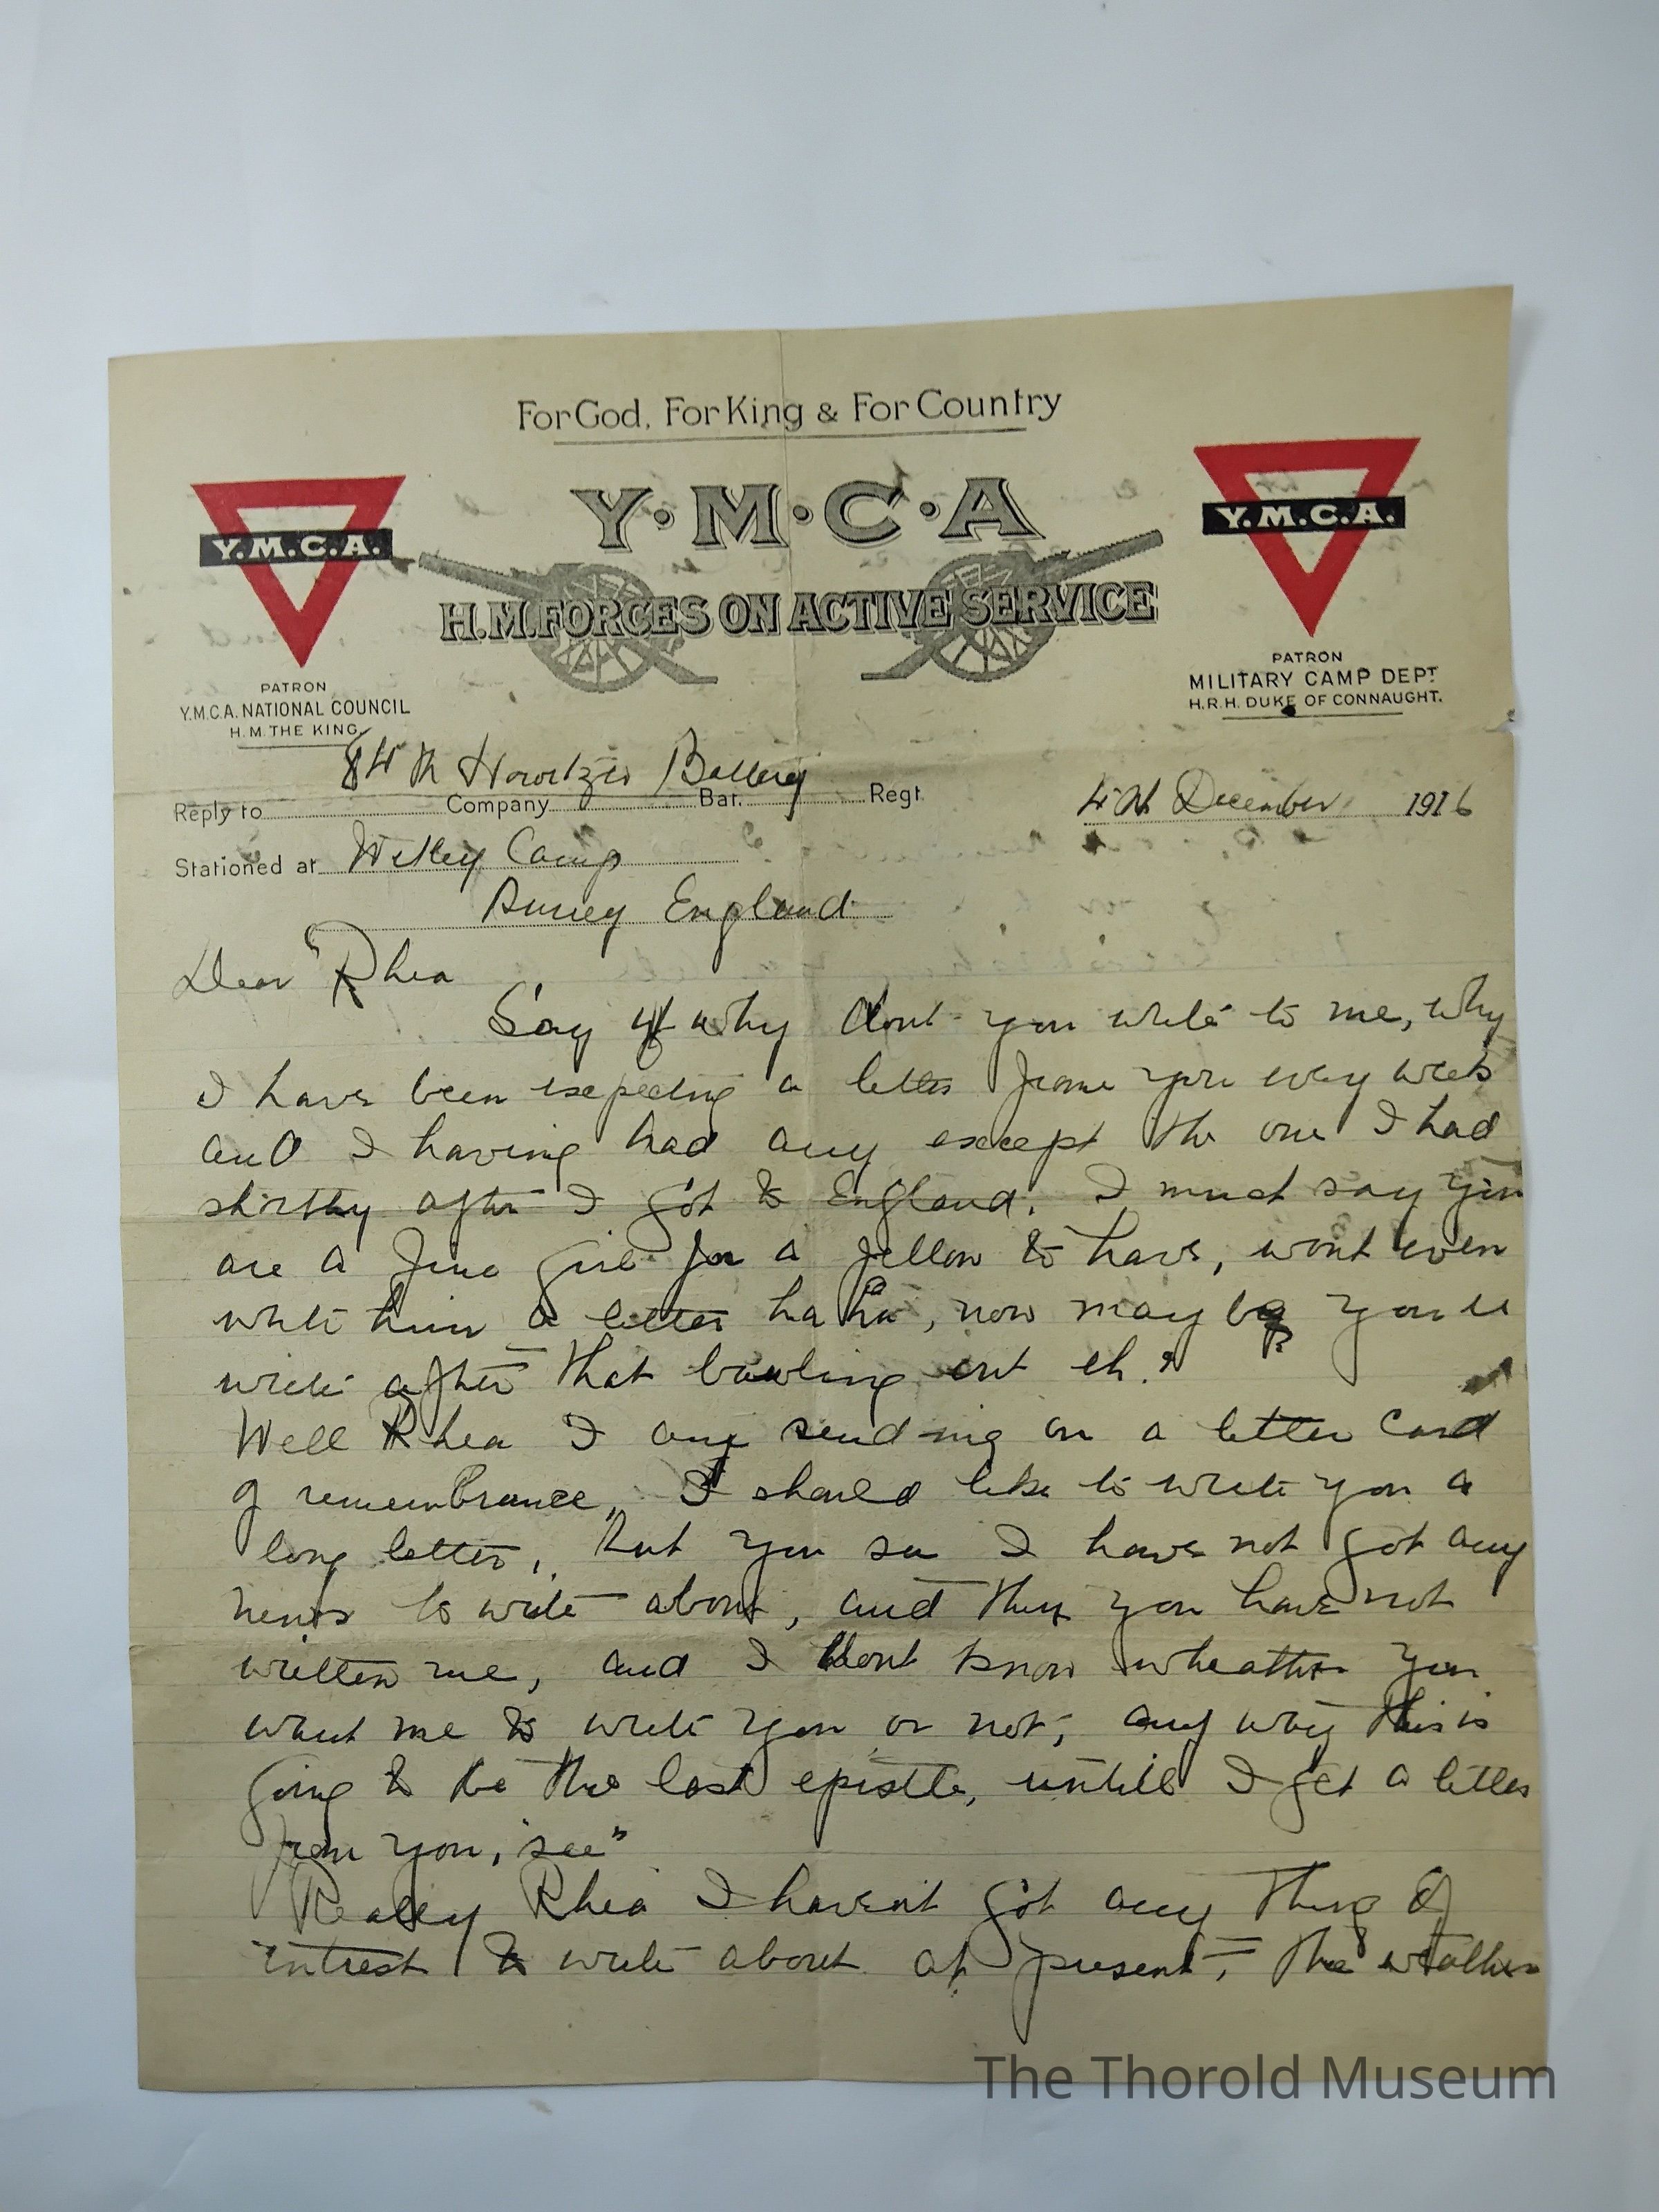 For God, For King & For Country
Y·M·C·A
H.M. FORCES ON ACTIVE SERVICE
Y.M.C.A.
PATRON
Y.M.C.A. NATIONAL COUNCIL
H.M. THE KING.
Y.M.C.A.
PATRON
MILITARY CAMP DEPT
H.R.H. DUKE OF CONNAUGHT.
84th Howitzer Battery
Reply to Company Bat. Regt.
4th December 1916
Stationed at Witley Camp
Surrey England
Dear Rhea
Say why dont you write to me, why
I have been expecting a letter from you every week
and I having had any except the one I had
shortly after I got to England. I must say you
are a fine girl for a fellow to have, wont even
write him a letter ha ha, now may be you ll
write after that bawling out eh?
Well Rhea I am sending on a letter card
of remembrance, I should like to write you a
long letter, but you see I have not got any
news to write about, and then you have not
written me, and I dont know wheather you
want me to write you or not, any way this is
going to be the last epistle, untill I get a letter
from you, "see"
Really Rhea I havent got any thing of
intrest to write about at present, the weather
The Thorold Museum